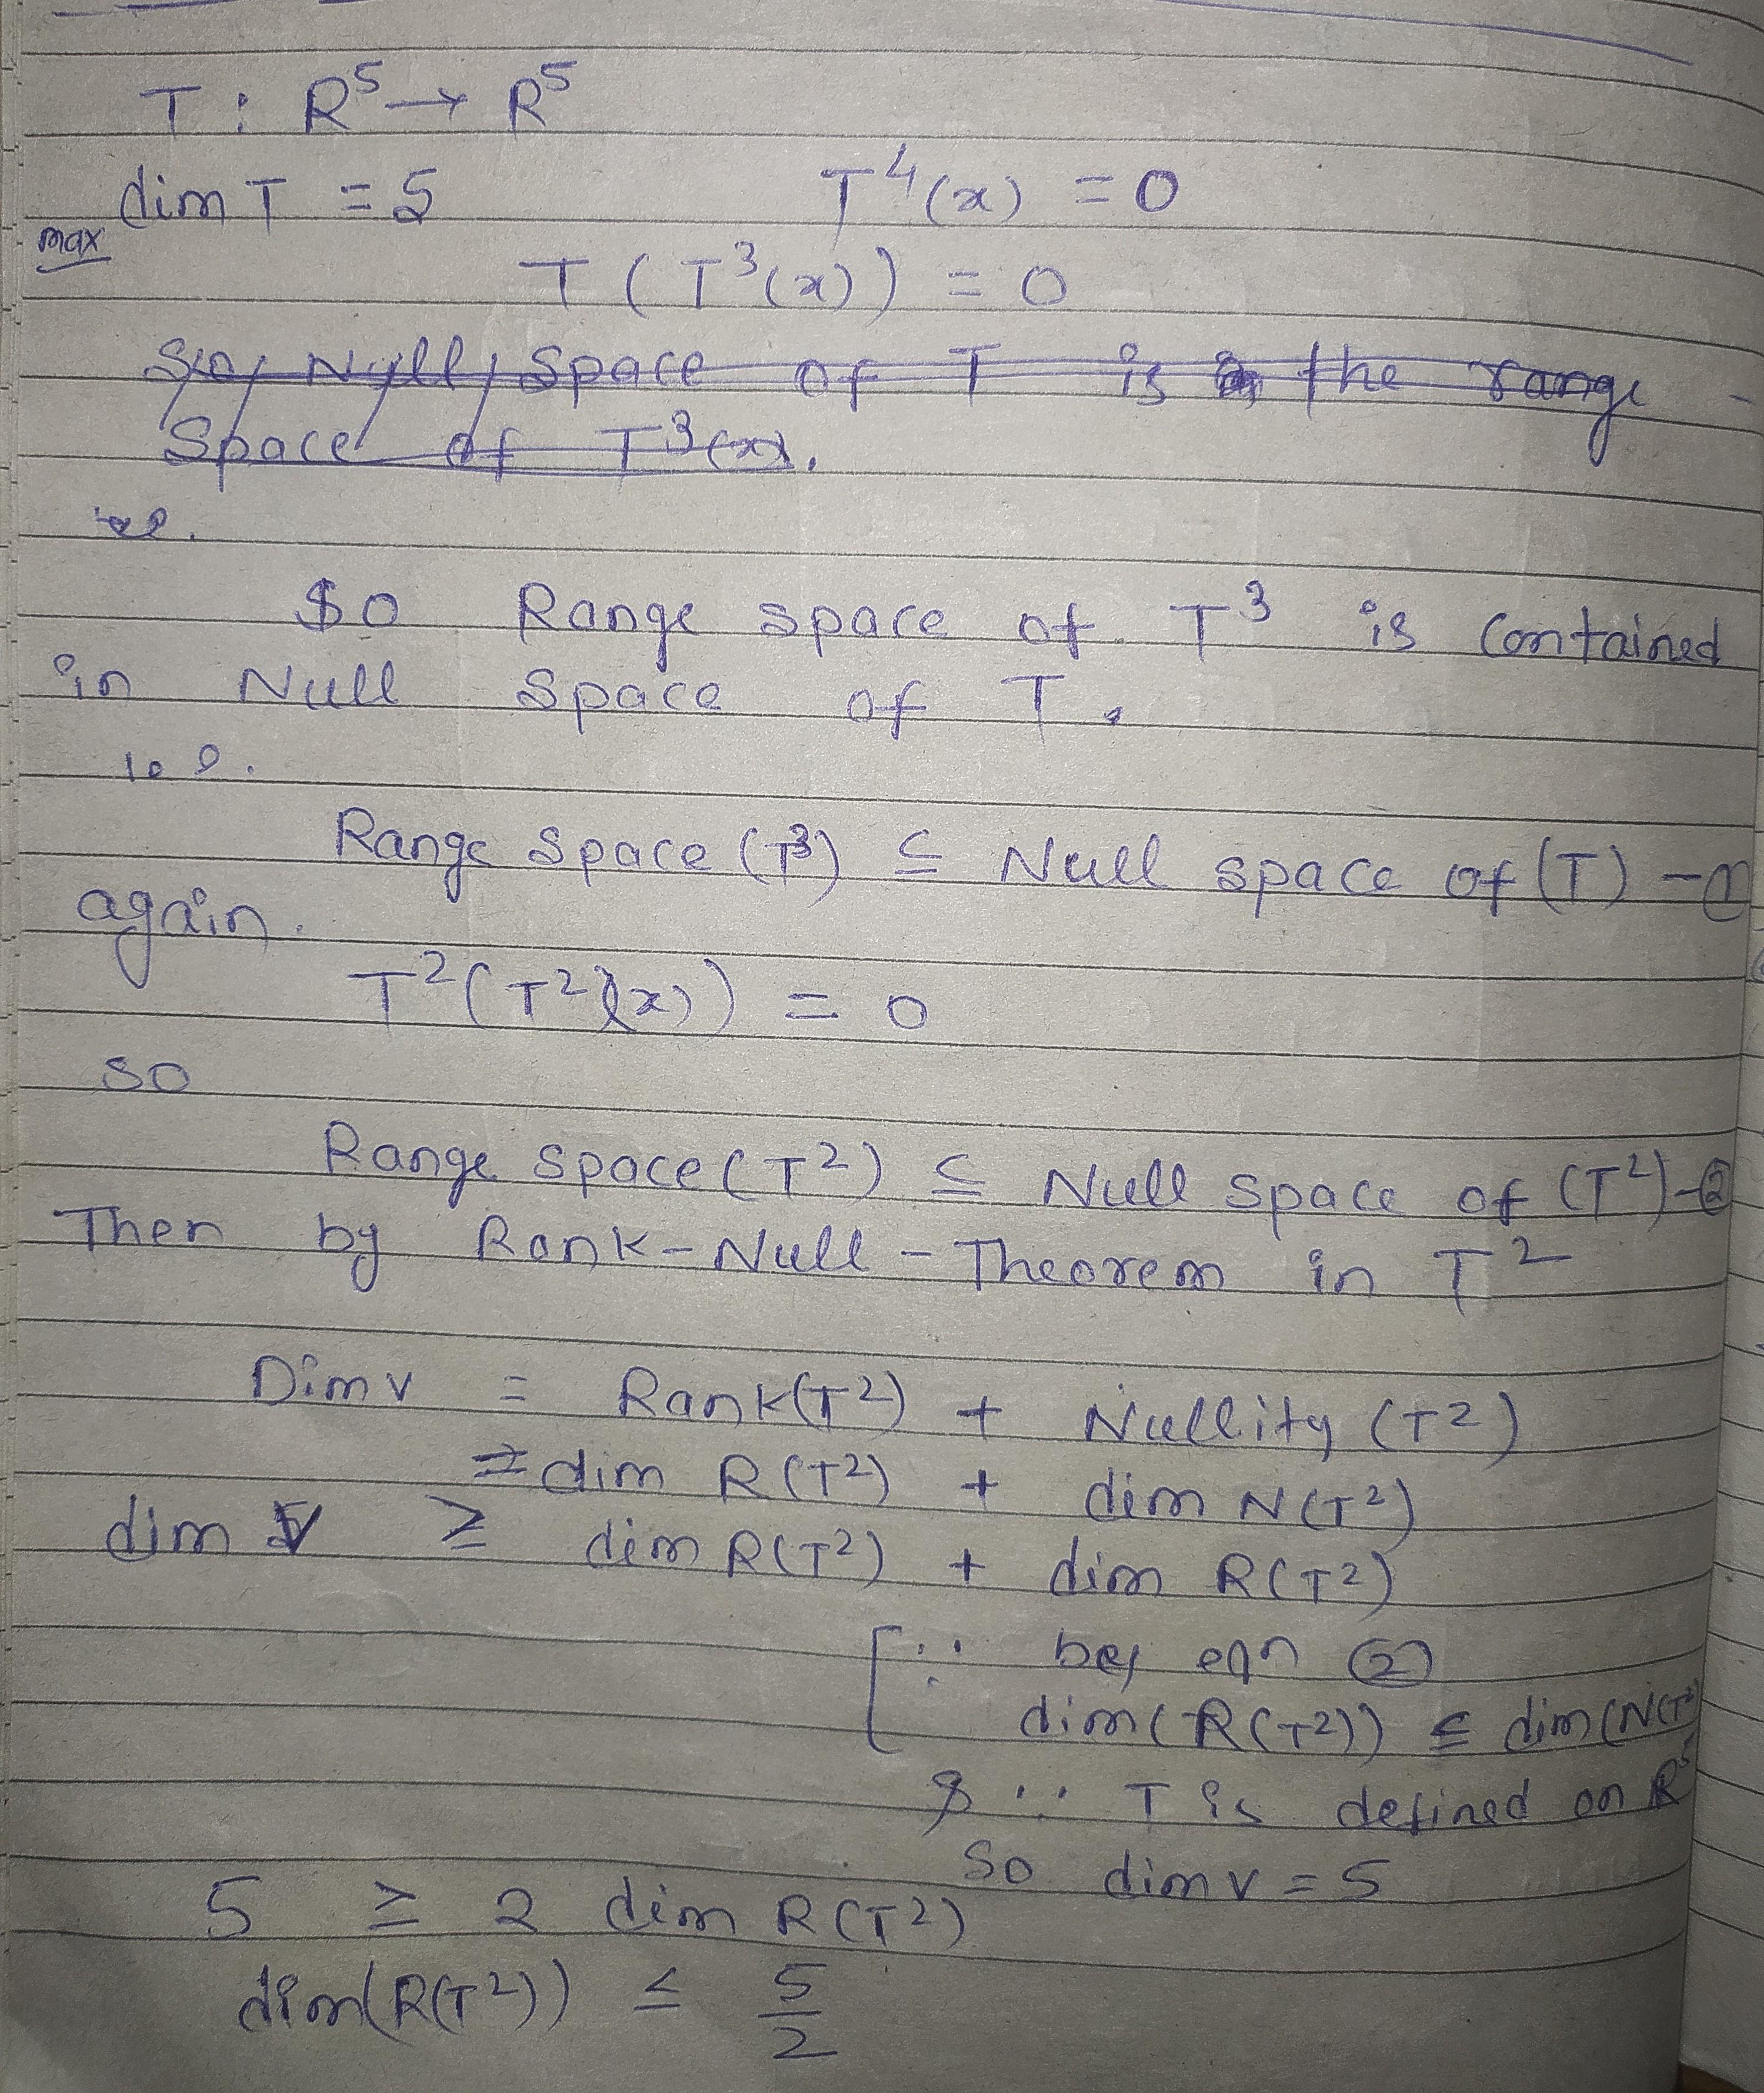 T : R⁵ → R⁵
dim T = 5 T⁴(x) = 0
max
T (T³(x)) = 0
So, Null, Space of T is the range
Space of T³(x).
i.e.
So Range space of T³ is contained
in Null Space of T.
i.e.
Range Space (T³) ⊆ Null space of (T) -①
again.
T²(T²(x)) = 0
so
Range space (T²) ⊆ Null space of (T²)-②
Then by Rank-Null-Theorem in T²
Dim v = Rank(T²) + Nullity (T²)
= dim R(T²) + dim N(T²)
dim V ≥ dim R(T²) + dim R(T²)
[∵ by eqn ②
dim(R(T²)) ≤ dim(N(T²)
& ∵ T is defined on R⁵
So dim v = 5
5 ≥ 2 dim R(T²)
dim(R(T²)) ≤ 5/2